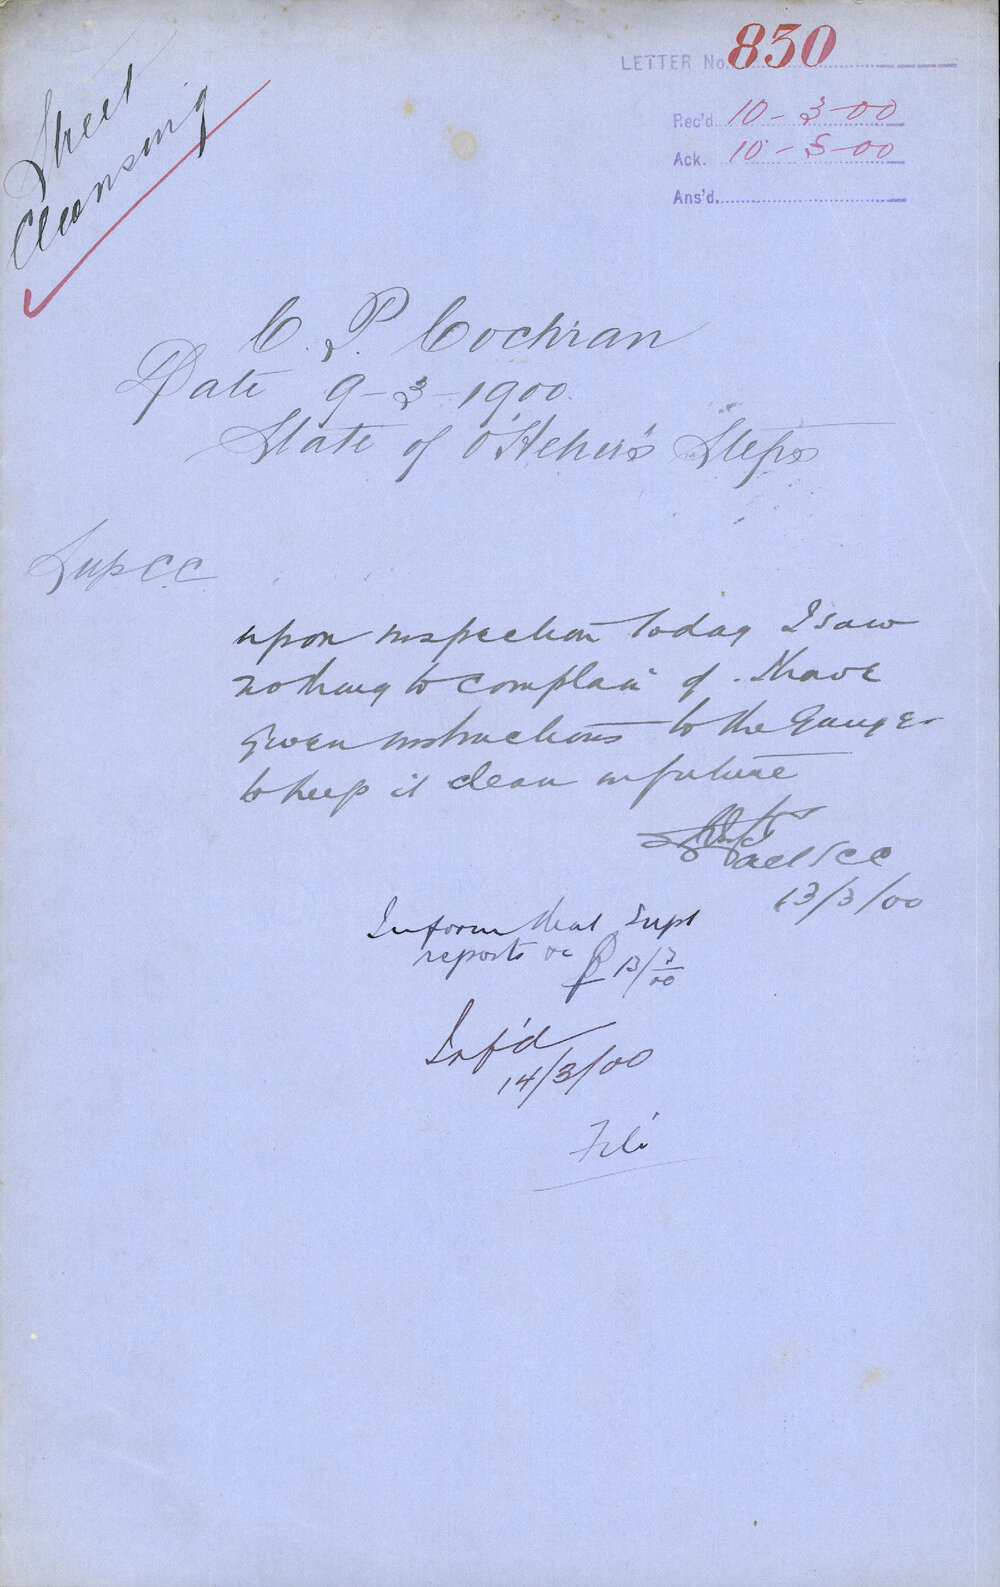 Street
Cleansing
LETTER No. 830
Rec'd 10-3-00
Ack. 10-3-00
Ans'd.
C. P. Cochran
Date 9-3-1900.
State of O'Hehir's Steps
Sup CC
upon inspection today I saw
nothing to complain of. I have
given instructions to the Ganger
to keep it clean in future
SCC
13/3/00
Inform that Supt
reports &c 13/3/00
Inf'd
14/3/00
File